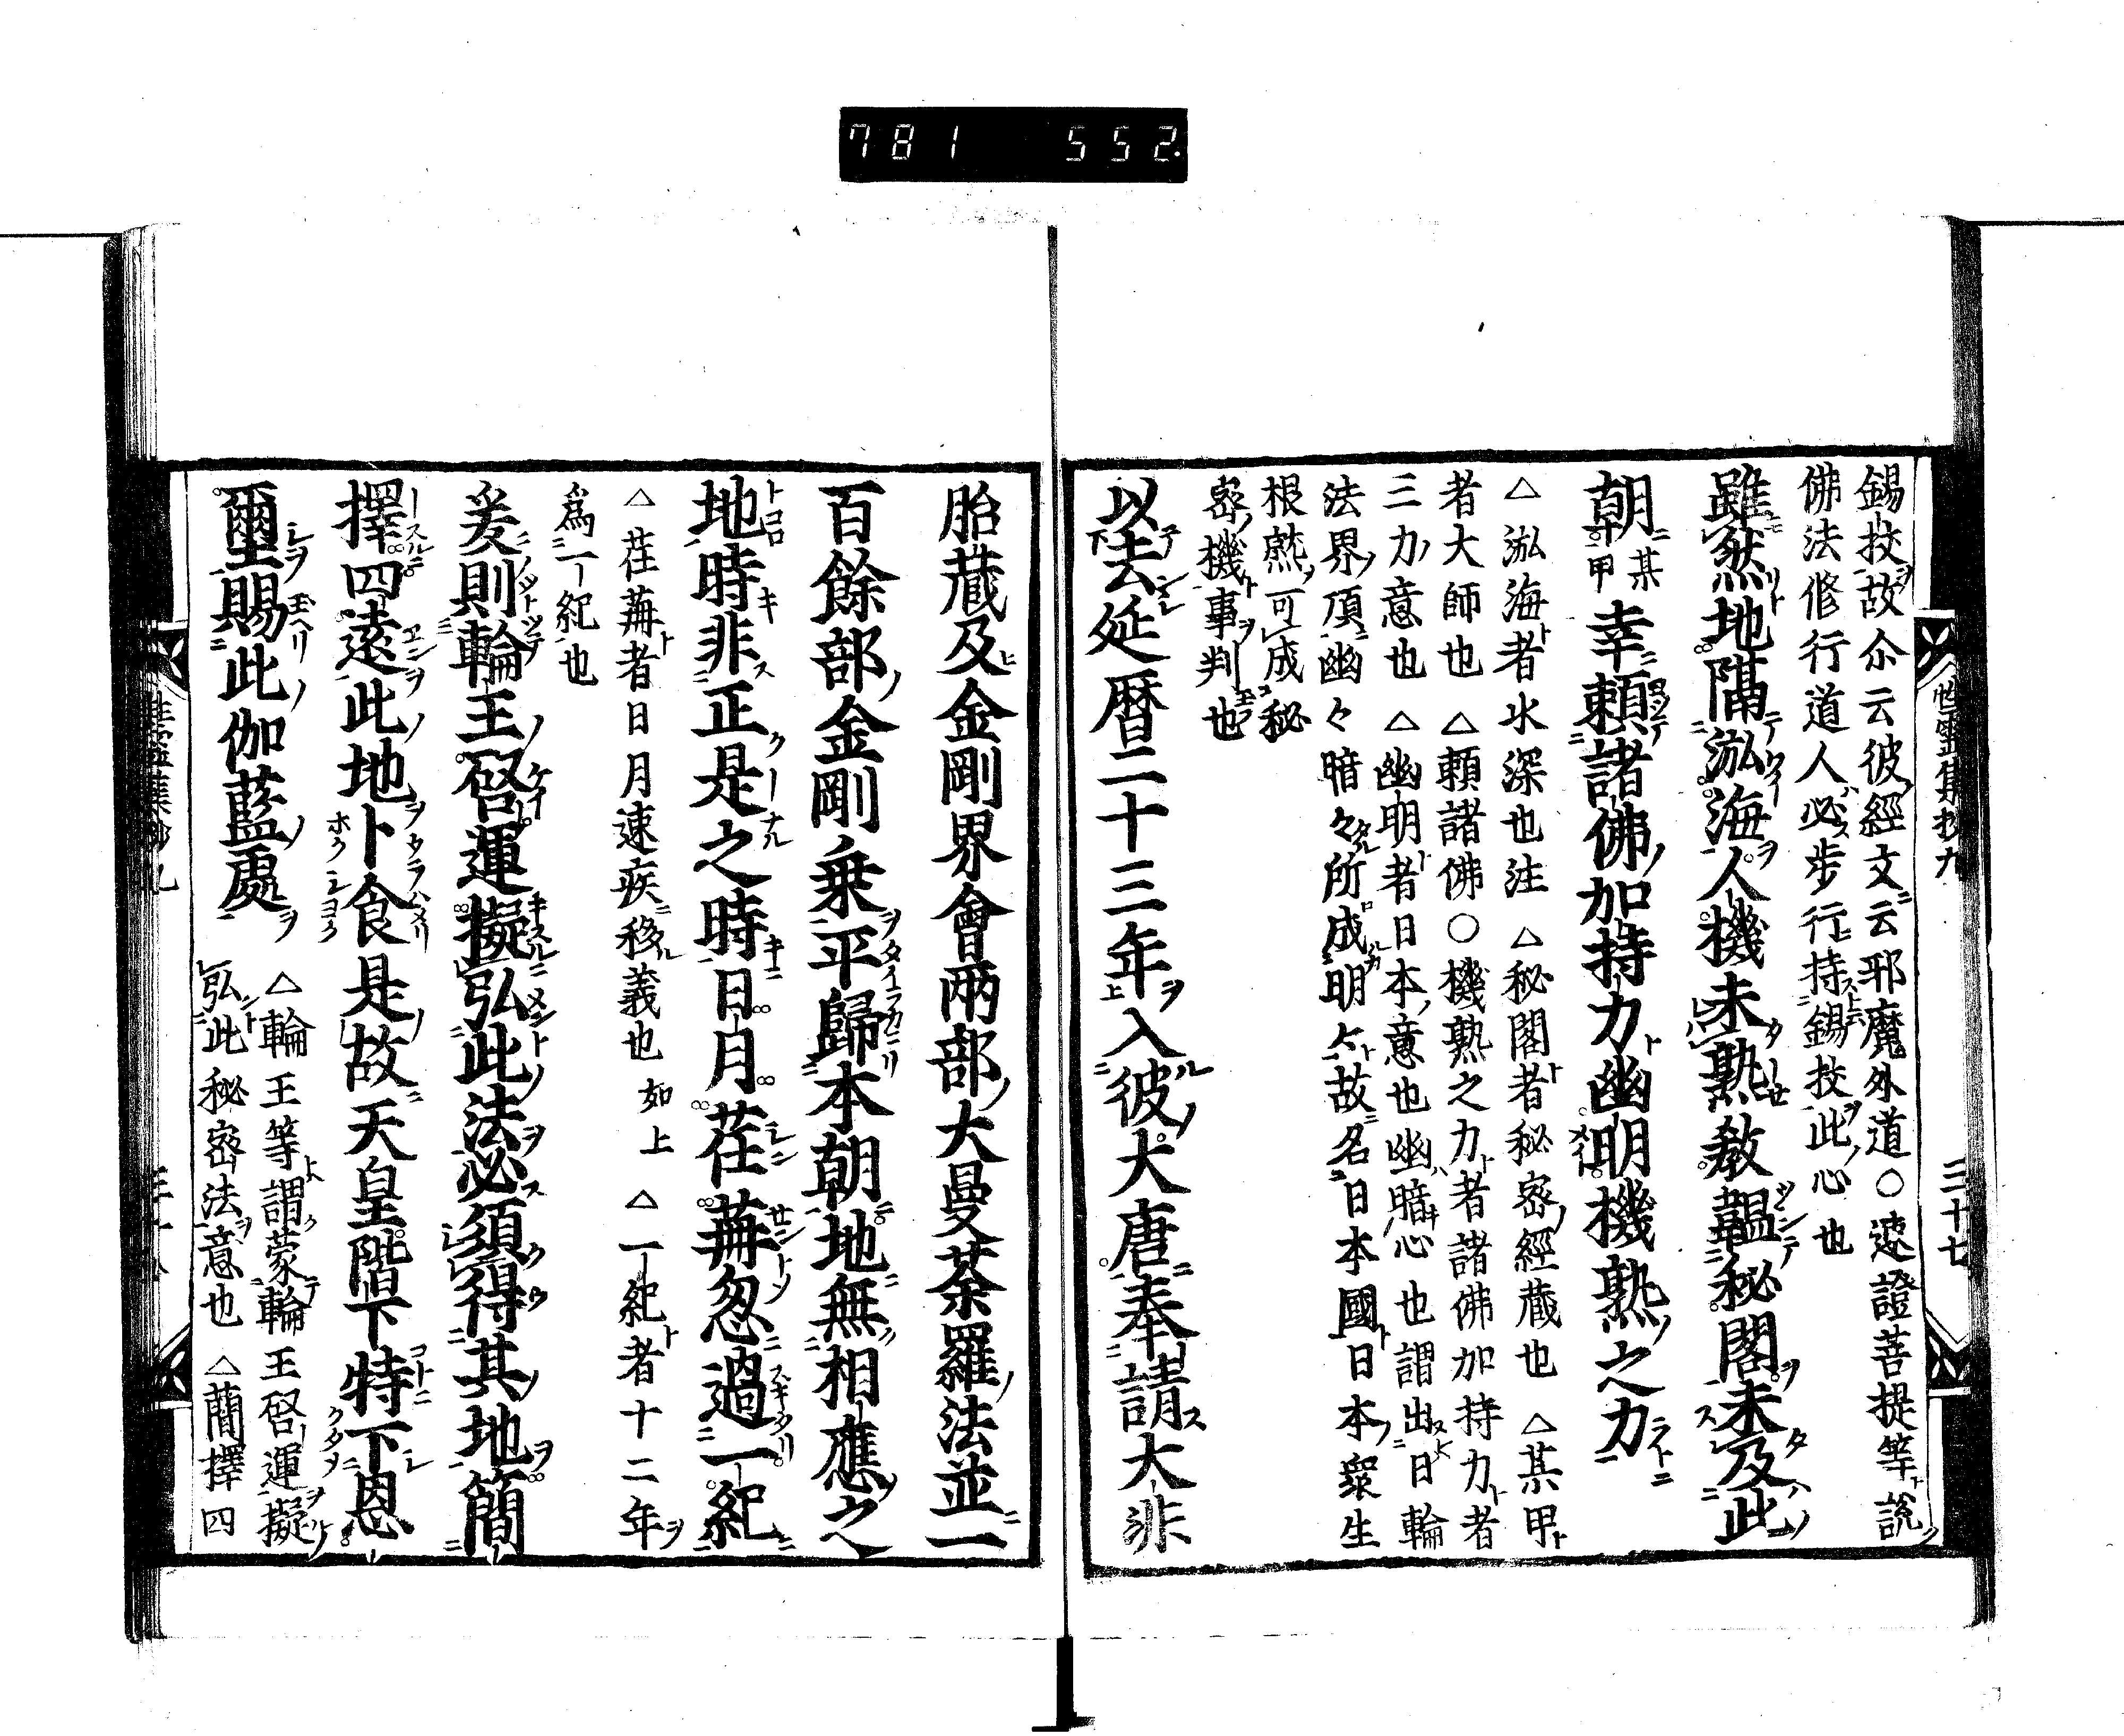 781 552.
性靈集抄九 三十七
錫杖故尒云彼經文云邪魔外道○速證菩提等說
佛法修行道人必步行持錫杖此心也
雖然地隔泓海人機未熟教韞秘閣未及此
朝某甲幸賴諸佛加持力幽明機熟之力
△泓海者水深也注 △秘閣者秘密經藏也 △某甲
者大師也 △賴諸佛○機熟之力者諸佛加持力者
三力意也 △幽明者日本意也幽暗心也謂出日輪
法界頂幽々暗々所成明々故名日本國日本衆生
根熟可成秘
密機事判也
以去延曆二十三年入彼大唐奉請大悲
胎藏及金剛界會兩部大曼荼羅法並一
百餘部金剛乘平歸本朝地無相應之
地時非正是之時日月荏苒忽過一紀
△荏苒者日月速疾移義也如上 △一紀者十二年
爲一紀也
爰則輪王啓運擬弘此法必須得其地簡
擇四遠此地卜食是故天皇階下特下恩
璽賜此伽藍處
△輪王等謂蒙輪王啓運擬
弘此秘密法意也 △蕑擇四